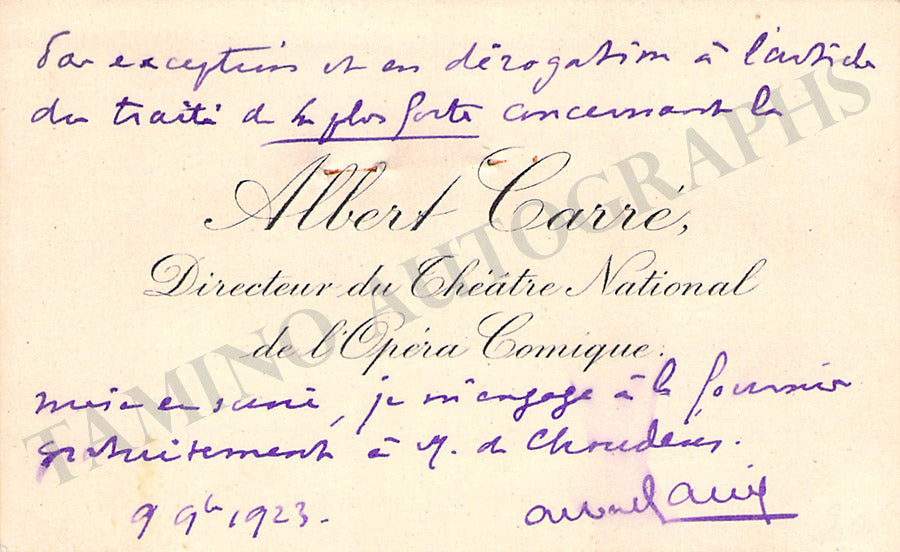 Par exception et en dérogation à l'article
du traité de la plus forte concernant la
Albert Carré,
Directeur du Théâtre National
de l'Opéra Comique.
mise en scène, je m'engage à la fournir
gratuitement à M. de Choudens.
9 9bre 1923.
Albert Carré
TAMINO AUTOGRAPHS